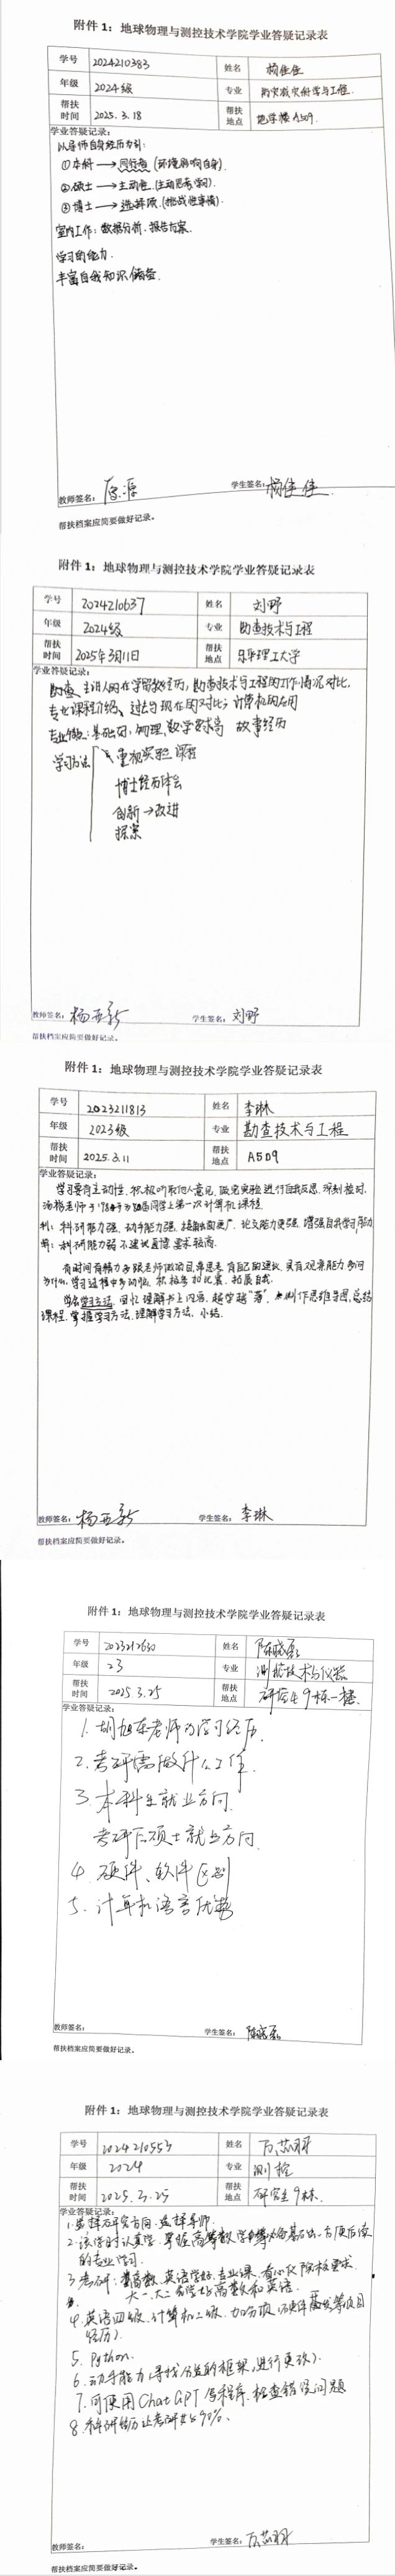 附件 1：地球物理与测控技术学院学业答疑记录表
学号 2024210383 姓名 赖佳佳
年级 2024级 专业 防灾减灾科学与工程
帮扶时间 2025.3.18 帮扶地点 地学楼A509
学业答疑记录：
以导师自身经历为引：
①本科→同行者(环境影响自身).
②硕士→主动性(主动思考学习).
③博士→选择项(挑战性事情).
室内工作：数据分析、报告方案.
学习的能力.
丰富自我知识储备.
教师签名： 学生签名：赖佳佳
帮扶档案应简要做好记录。
附件 1：地球物理与测控技术学院学业答疑记录表
学号 2024210637 姓名 刘野
年级 2024级 专业 勘查技术与工程
帮扶时间 2025年3月11日 帮扶地点 东华理工大学
学业答疑记录：
勘查、主讲人的在学留校经历，勘查技术与工程的工作情况对比，
专业课程介绍、过去与现在的对比；计算机的应用
专业：基础,物理,数学要求高 故事经历
学习方法 重视实验课程
博士经历体会
创新→改进
探索
教师签名：杨亚新 学生签名：刘野
帮扶档案应简要做好记录。
附件 1：地球物理与测控技术学院学业答疑记录表
学号 2023211813 姓名 李琳
年级 2023级 专业 勘查技术与工程
帮扶时间 2025.3.11 帮扶地点 A509
学业答疑记录：
学习要有主动性，积极听取他人意见，做完实验进行自我反思，深刻检讨.
汤彬老师于1984年为同学上第一次计算机课程.
利：科研能力强，动手能力强，接触面更广，论文能力更强，增强自我学习能力
弊：科研能力弱不建议直博，要求较高.
有时间有精力多跟老师做项目，多思考，有自己的建议，具有观察能力，多问
为什么，学习过程中多动脑，积极参加比赛，拓展自我.
学会学习方法，回忆理解书上内容，越学越“薄”，制作思维导图，总结
课程，掌握学习方法，理解学习方法，小结.
教师签名：杨亚新 学生签名：李琳
帮扶档案应简要做好记录。
附件 1：地球物理与测控技术学院学业答疑记录表
学号 2023212630 姓名 陈晓磊
年级 23 专业 测控技术与仪器
帮扶时间 2025.3.25 帮扶地点 研究生9栋一楼
学业答疑记录：
1.胡旭东老师的学习经历.
2.考研需做什么工作.
3.本科生就业方向.
考研后硕士就业方向.
4.硬件、软件区别
5.计算机语言优势
教师签名： 学生签名：陈晓磊
帮扶档案应简要做好记录。
附件 1：地球物理与测控技术学院学业答疑记录表
学号 2024210553 姓名 万芯羽
年级 2024 专业 测控
帮扶时间 2025.3.25 帮扶地点 研究生9栋.
学业答疑记录：
1.选择研究方向.选择导师.
2.该学时认真学.掌握高等数学等为基础.方便后续
的专业学习.
3.考研：高数、英语学好.专业课.看心仪院校要求.
大一、大二多学好高数和英语.
4.英语四级、计算机二级、加分项(硬件等项目
经历).
5.Python.
6.动手能力(寻找合适的框架,进行更改).
7.可使用ChatGPT写程序、检查错误问题
8.科研经历比考研占90%.
教师签名： 学生签名：万芯羽
帮扶档案应简要做好记录。